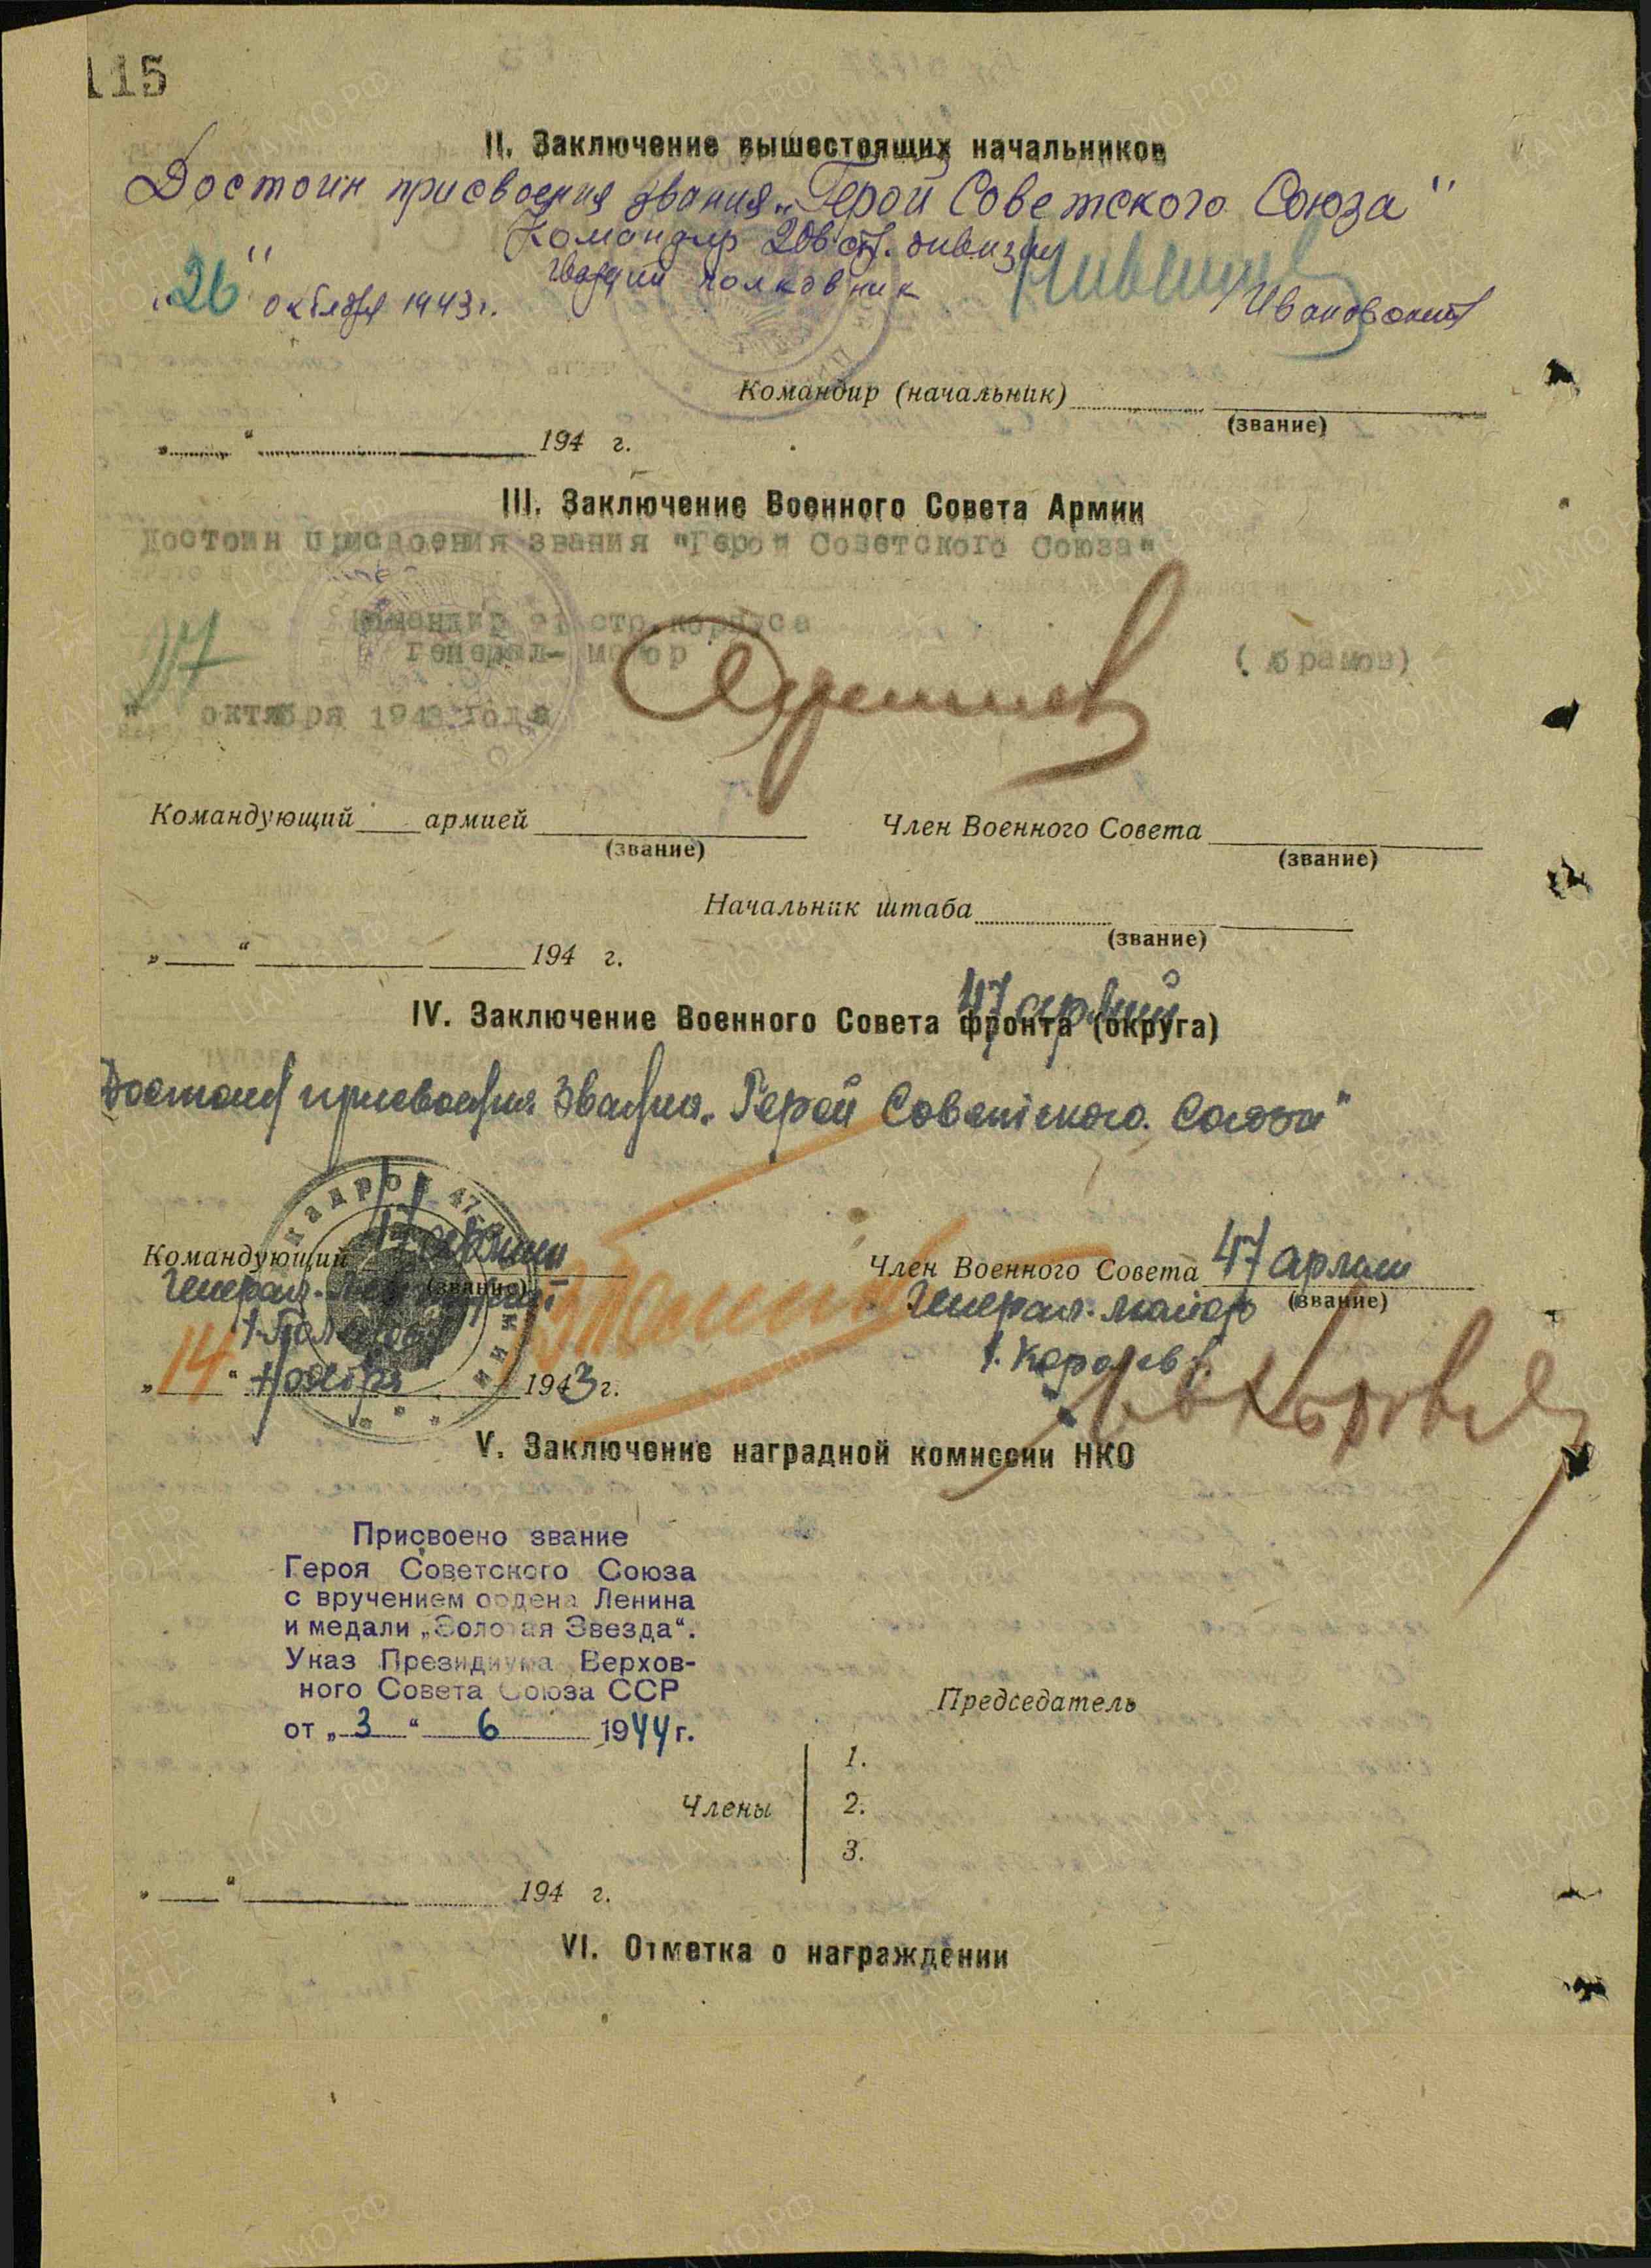 115
II. Заключение вышестоящих начальников
Достоин присвоения звания „Герой Советского Союза"
Командир 206 ст. дивизии
гвардии полковник
"26" октября 1943 г.
Командир (начальник)
(звание)
„ “ 194 г.
III. Заключение Военного Совета Армии
Достоин присвоения звания "Герой Советского Союза"
Командир 21 стр. корпуса
генерал-майор
( брамов)
27
" октября 1943 года
Командующий армией
(звание)
Член Военного Совета
(звание)
Начальник штаба
(звание)
„ “ 194 г.
47 армии
IV. Заключение Военного Совета фронта (округа)
Достоин присвоения звания „Герой Советского Союза"
Командующий 47 армии
(звание)
Член Военного Совета 47 армии
Генерал-майор (звание)
Королев
„14“ ноября 1943 г.
V. Заключение наградной комиссии НКО
Присвоено звание
Героя Советского Союза
с вручением ордена Ленина
и медали „Золотая Звезда“.
Указ Президиума Верхов-
ного Совета Союза ССР
от „3“ 6 1944 г.
Председатель
Члены
1.
2.
3.
„ “ 194 г.
VI. Отметка о награждении